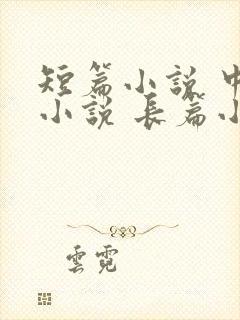 短篇小説 中
小説 長篇小
雲霓